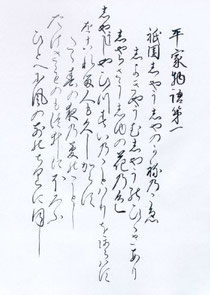 平家物語第一
祇園しやうしやのかね乃こゑ
しよきやうむしやうのひゝきあり
しやらさうしゆの花乃色
しやうしやひつすいのことわりをあらはす
おこれる人も久しからす
たゝ春の夜乃夢のことし
たけきものもつひにはほろふ
ひとへに風の前のちりに同し